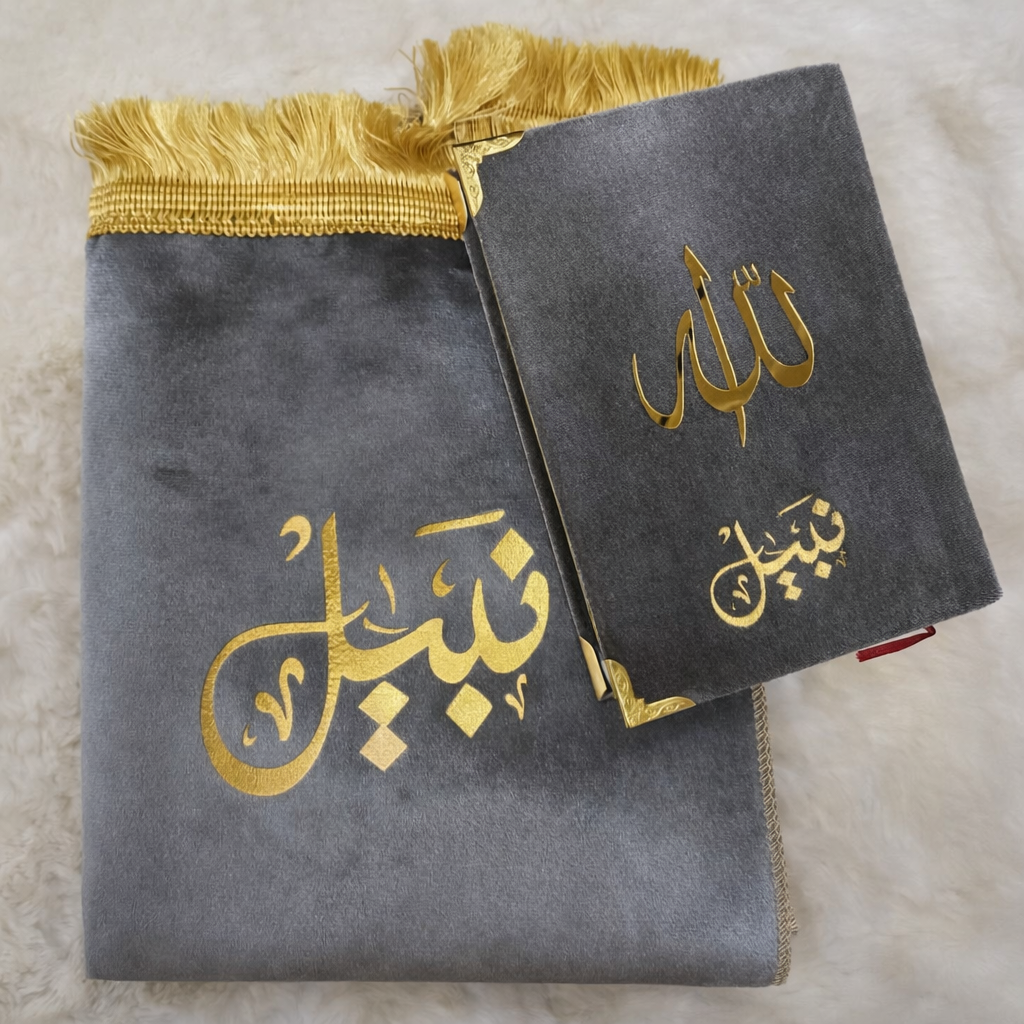 الله
نبيل
نبيل